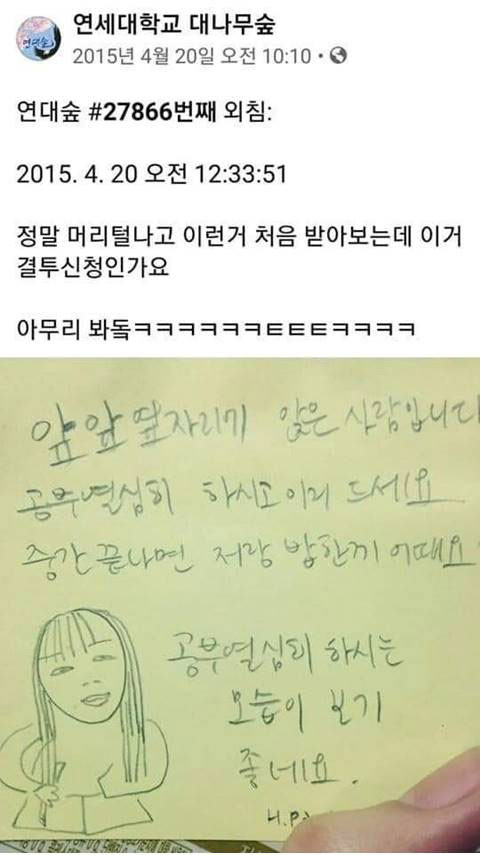 연세대학교 대나무숲
2015년 4월 20일 오전 10:10 ·
연대숲 #27866번째 외침:
2015. 4. 20 오전 12:33:51
정말 머리털나고 이런거 처음 받아보는데 이거
결투신청인가요
아무리 봐돜ㅋㅋㅋㅋㅋㅋㅌㅌㅌㅋㅋㅋㅋ
앞앞 옆자리가 앉은 사람입니다
공부열심히 하시고 이리 드세요
중간 끝나면 저랑 밥한끼 어때요
공부열심히 하시는
모습이 보기
좋네요.
H.P